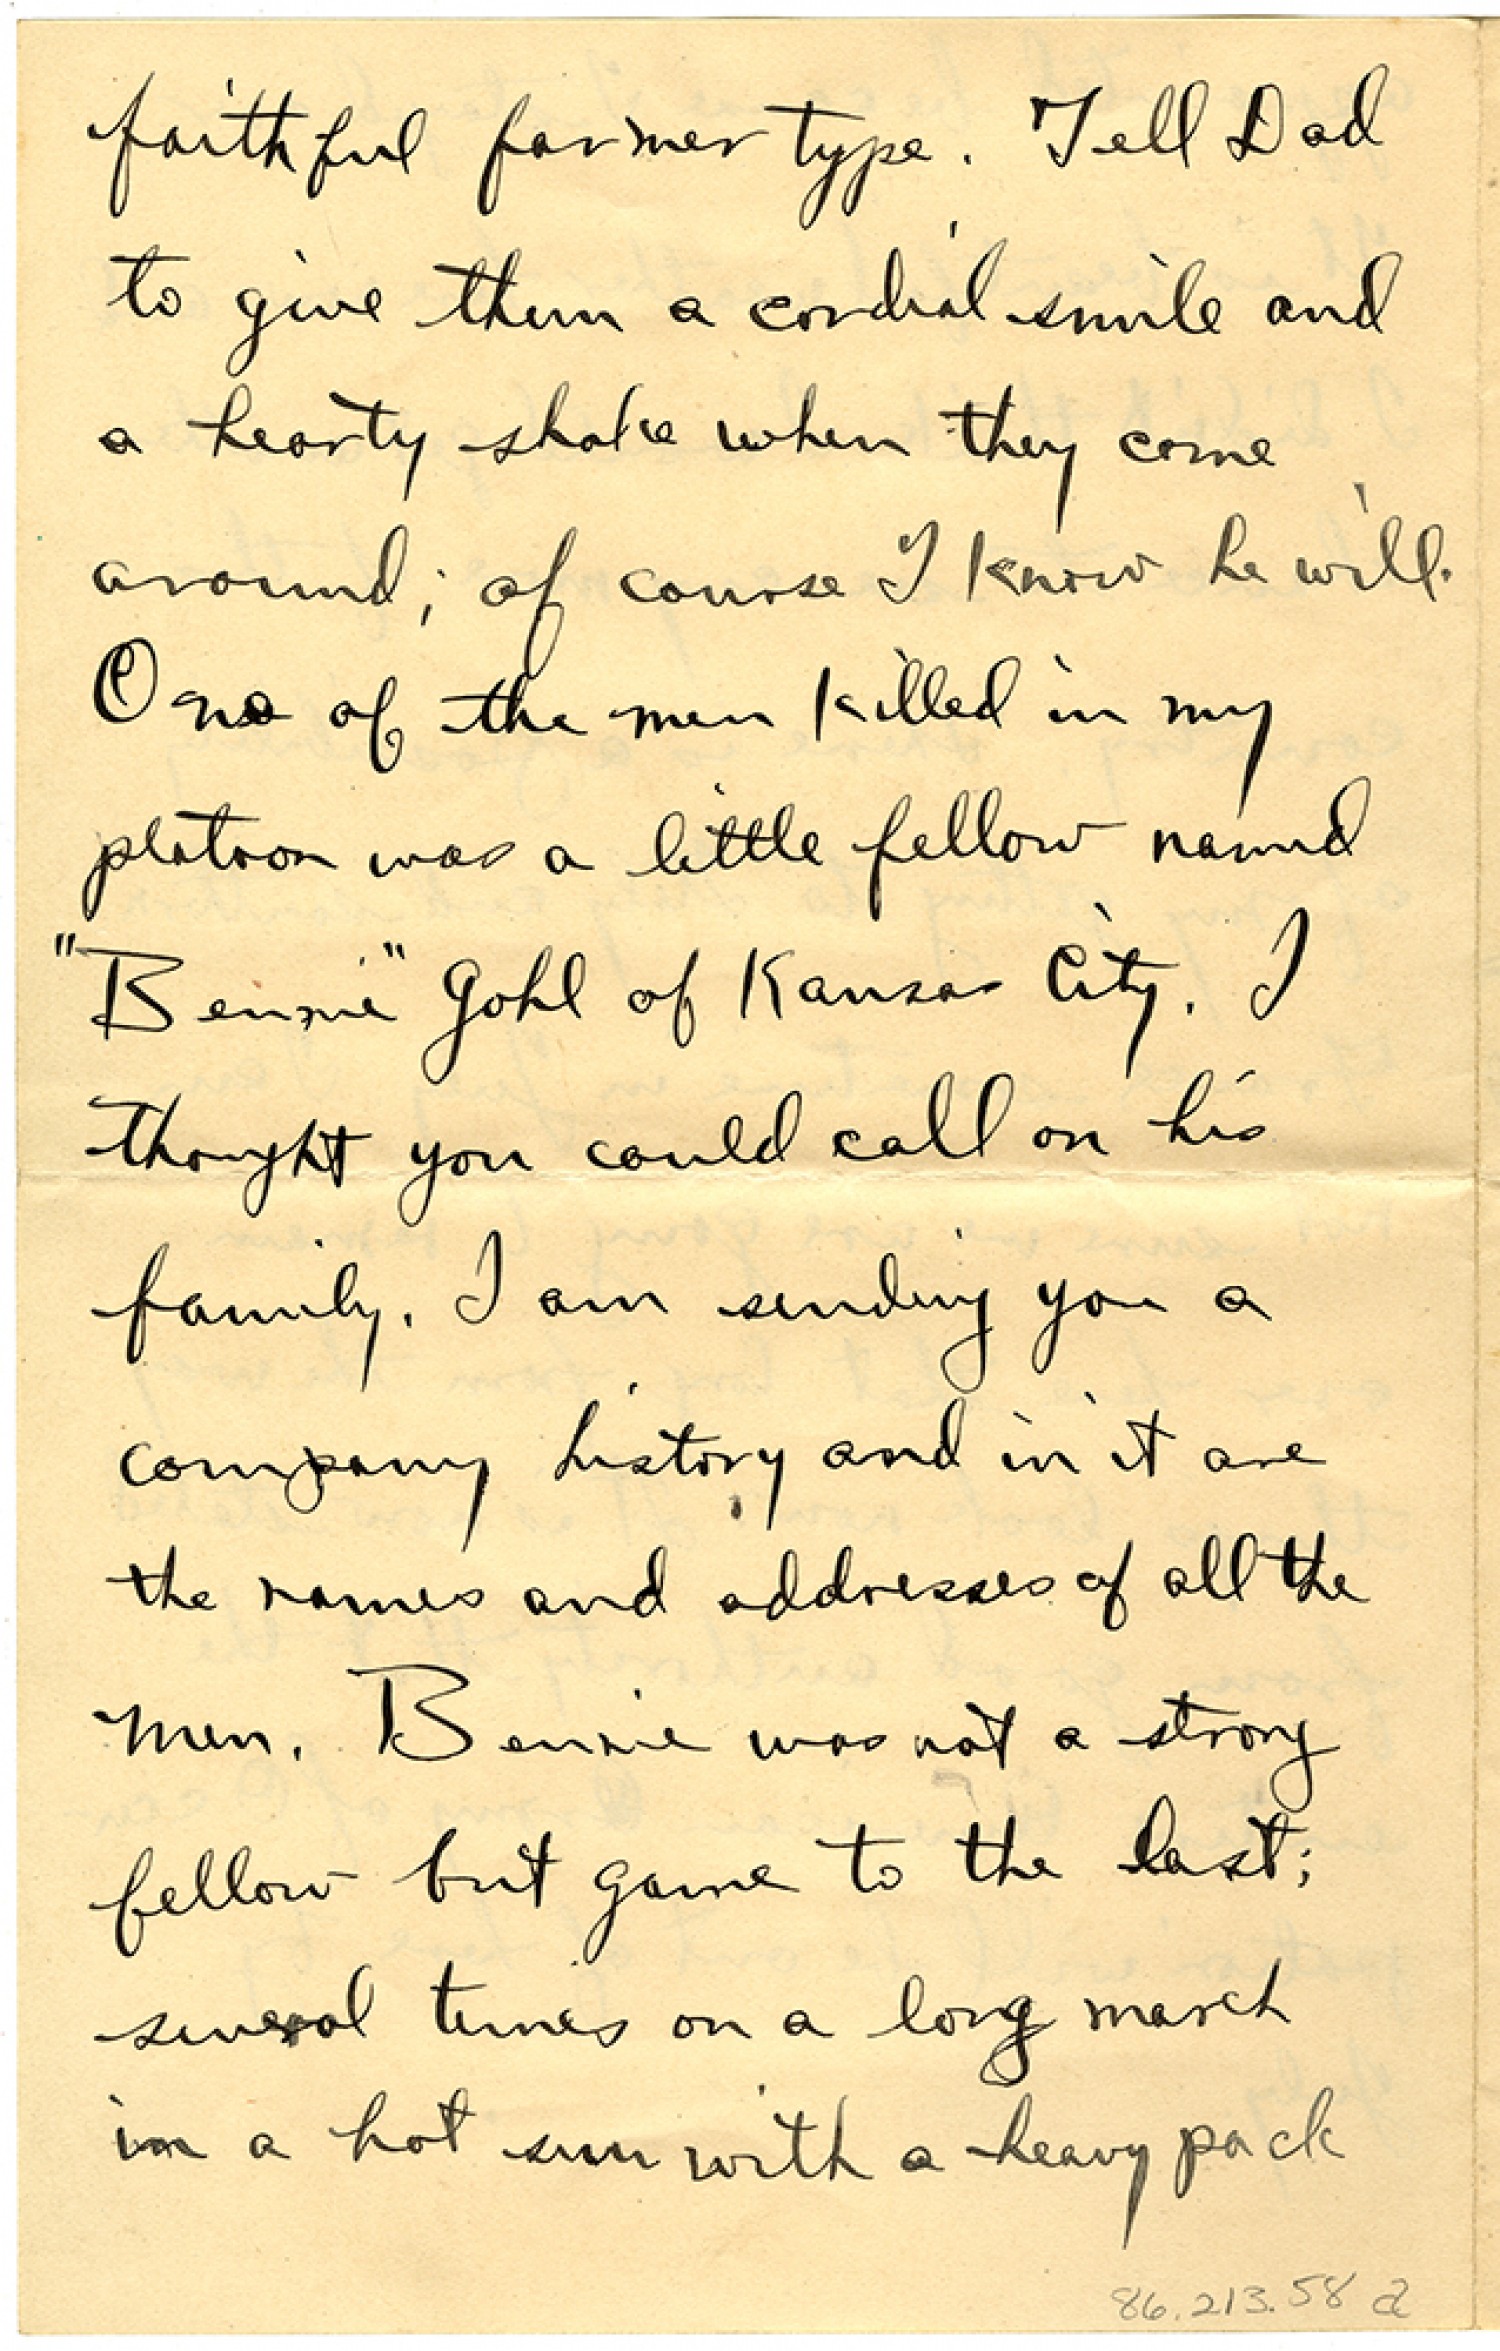 faithful farmer type. Tell Dad
to give them a cordial smile and
a hearty shake when they come
around; of course I know he will.
One of the men killed in my
platoon was a little fellow named
"Bennie" Gohl of Kansas City. I
thought you could call on his
family. I am sending you a
company history and in it are
the names and addresses of all the
men. Bennie was not a strong
fellow but game to the last;
several times on a long march
in a hot sun with a heavy pack
86.213.58 a